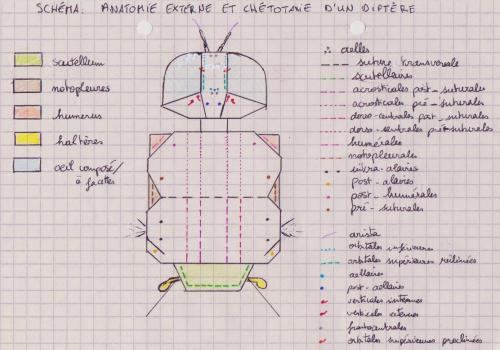 SCHÉMA. ANATOMIE EXTERNE ET CHÉTOTAXIE D'UN DIPTÈRE
scutellum
notopleures
humerus
haltères
oeil composé/
à facettes
ocelles
suture transversale
scutellaires
acrosticales post-suturales
acrosticales pré-suturales
dorso-centrales post-suturales
dorso-centrales pré-suturales
humérales
notopleurales
supra-alaires
post-alaires
post-humérales
pré-suturales
arista
orbitales inférieures
orbitales supérieures réclinées
ocellaires
post-ocellaires
verticales internes
verticales externes
frontocentrales
orbitales supérieures proclinées